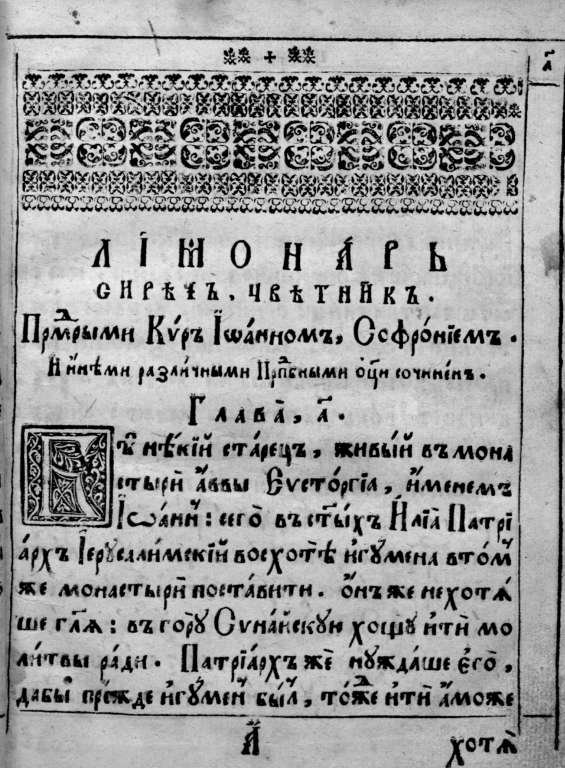 ҃а
ЛІМОНА́РЬ
СИРѢЧЬ, ЦВѢТНИ́КЪ.
Прⷣмрыми Кѵ́ръ Іѡа́нномъ, Софро́нїемъ.
И҆ и҆нѣ́ми разли́чными Прⷣпбными ѻ҆ц҃ы сочине́нъ.
Глава̀, а҃.
Бѣ̀ нѣ́кїй ста́рецъ, живы́й въ мона
стыри́ а҆́ввы Єѵсто́ргїа, и҆́менемъ
Іѡа́ннъ: сего̀ въ ст҃ы́хъ И҆лїа̀ Патрї
а́рхъ Іерⷭ҇алимскїй восхотѣ̀ и҆гꙋ́мена в то́мъ
же монастырѝ поста́вити. Ѻ҆́нъ же не хотѧ́
ше гл҃ѧ: въ го́рꙋ Сѵна́йскꙋю хощꙋ̀ и҆тѝ мо
ли́твы ра́ди. Патрїа́рхъ же нꙋжда́ше є҆го̀,
дабы̀ пре́жде и҆гꙋ́менъ бы́лъ, то́же и҆тѝ а҆́може
А҃
хотѧ̀